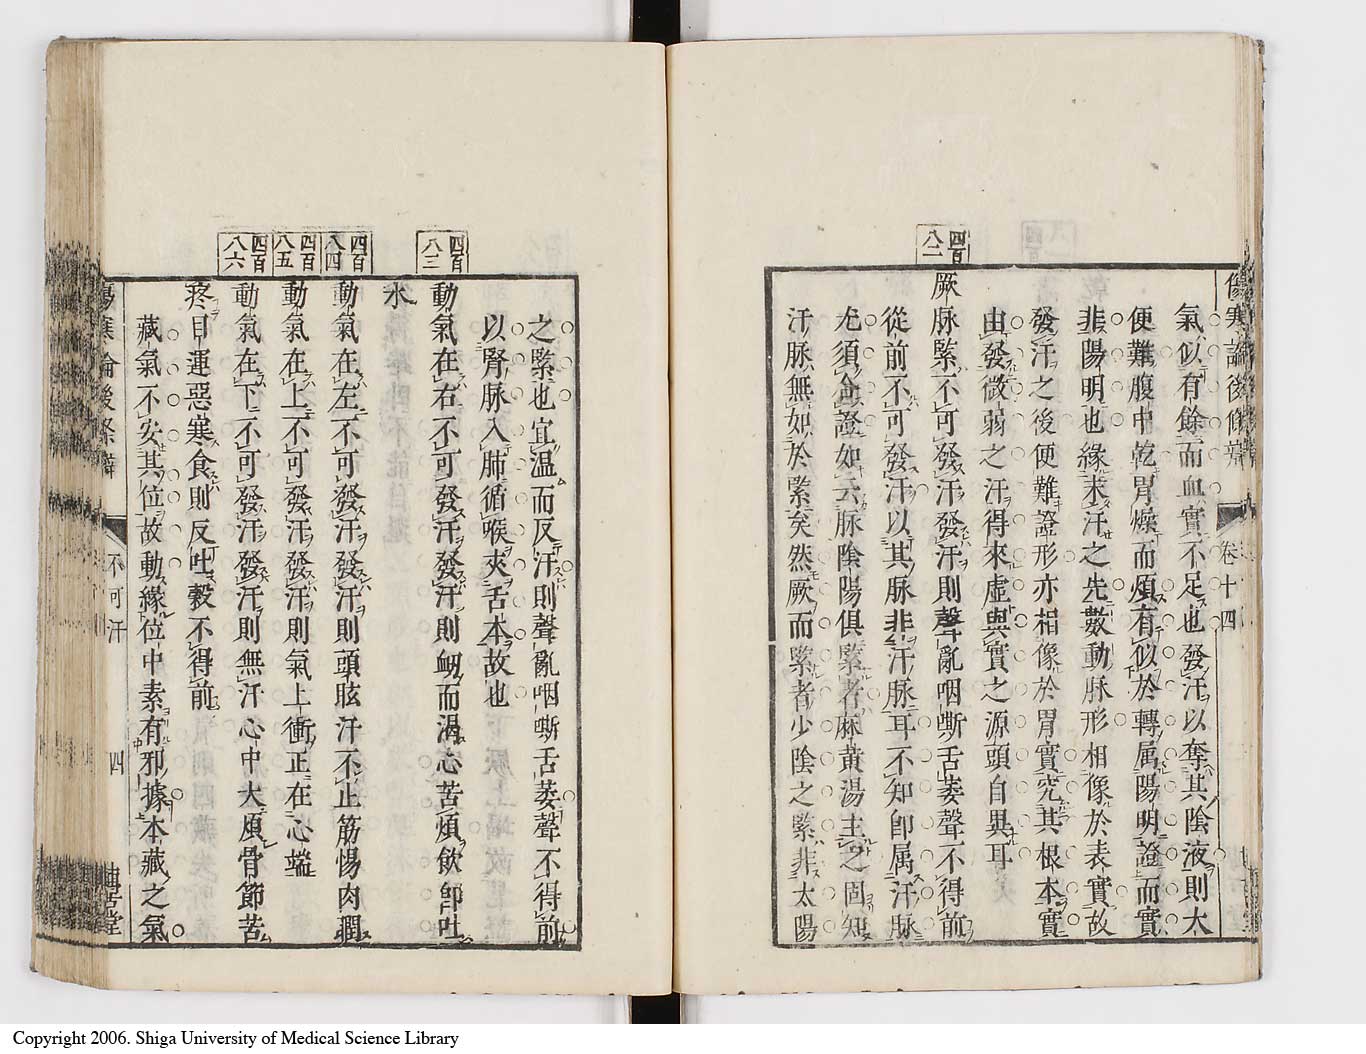 傷寒論後條辨 卷十四
氣似有餘而血實不足也發汗以奪其陰液則大
便難腹中乾胃燥而煩有似於轉属陽明證而實
非陽明也緣未汗之先數動脉形相像於表實故
發汗之後便難證形亦相像於胃實究其根本實
由發微弱之汗得來虛與實之源頭自異耳
四百八二
厥脉緊不可發汗發汗則聲亂咽嘶舌萎聲不得前
從前不可發汗以其脉非汗脉耳不知卽属汗脉
尤須僉證如云脉陰陽俱緊者麻黃湯主之固知
汗脉無如於緊矣然厥而緊者少陰之緊非太陽
之緊也宜溫而反汗則聲亂咽嘶舌萎聲不得前
以腎脉入肺循喉夾舌本故也
四百八三
動氣在右不可發汗發汗則衂而渴心苦煩飲卽吐
水
四百八四
動氣在左不可發汗發汗則頭眩汗不止筋惕肉瞤
四百八五
動氣在上不可發汗發汗則氣上衝正在心端
四百八六
動氣在下不可發汗發汗則無汗心中大煩骨節苦
疼目運惡寒食則反吐穀不得前
藏氣不安其位故動緣位中素有邪據本藏之氣
傷寒論後條辨 不可汗 四
Copyright 2006. Shiga University of Medical Science Library